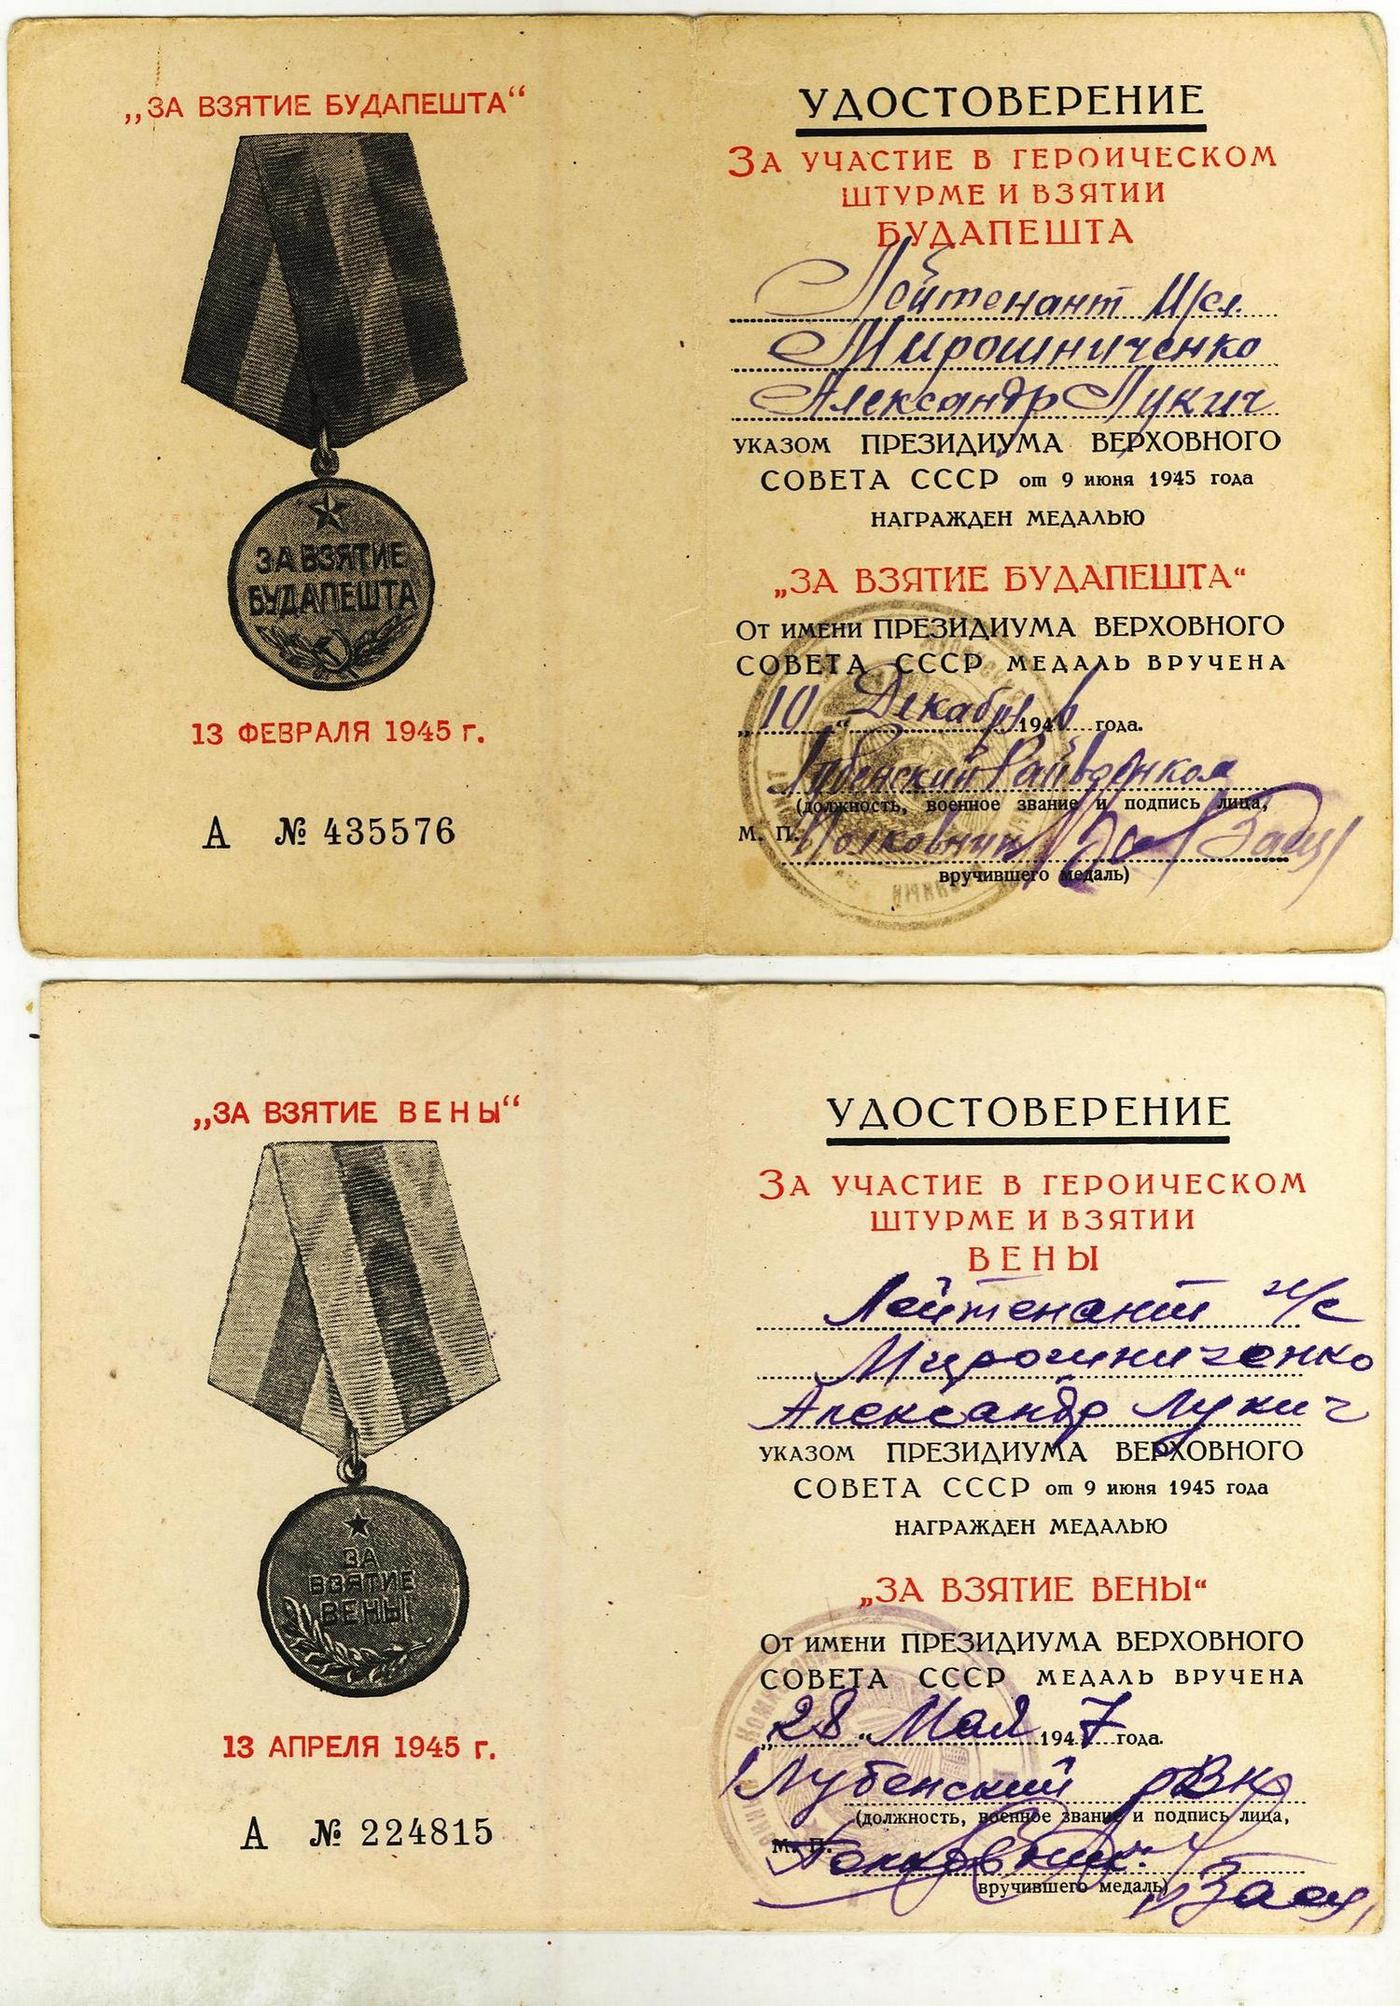 „ЗА ВЗЯТИЕ БУДАПЕШТА“
ЗА ВЗЯТИЕ
БУДАПЕШТА
13 ФЕВРАЛЯ 1945 г.
А № 435576
УДОСТОВЕРЕНИЕ
ЗА УЧАСТИЕ В ГЕРОИЧЕСКОМ
ШТУРМЕ И ВЗЯТИИ
БУДАПЕШТА
Лейтенант
Мирошниченко
Александр Лукич
УКАЗОМ ПРЕЗИДИУМА ВЕРХОВНОГО
СОВЕТА СССР от 9 июня 1945 года
НАГРАЖДЕН МЕДАЛЬЮ
„ЗА ВЗЯТИЕ БУДАПЕШТА“
ОТ ИМЕНИ ПРЕЗИДИУМА ВЕРХОВНОГО
СОВЕТА СССР МЕДАЛЬ ВРУЧЕНА
„10“ Декабря 1946 года.
Лубенский Райвоенком
(должность, военное звание и подпись лица,
М. П. Полковник
вручившего медаль)
„ЗА ВЗЯТИЕ ВЕНЫ“
ЗА
ВЗЯТИЕ
ВЕНЫ
13 АПРЕЛЯ 1945 г.
А № 224815
УДОСТОВЕРЕНИЕ
ЗА УЧАСТИЕ В ГЕРОИЧЕСКОМ
ШТУРМЕ И ВЗЯТИИ
ВЕНЫ
Лейтенант
Мирошниченко
Александр Лукич
УКАЗОМ ПРЕЗИДИУМА ВЕРХОВНОГО
СОВЕТА СССР от 9 июня 1945 года
НАГРАЖДЕН МЕДАЛЬЮ
„ЗА ВЗЯТИЕ ВЕНЫ“
ОТ ИМЕНИ ПРЕЗИДИУМА ВЕРХОВНОГО
СОВЕТА СССР МЕДАЛЬ ВРУЧЕНА
„28“ Мая 1947 года.
Лубенский РВК
(должность, военное звание и подпись лица,
М. П. Полковник
вручившего медаль)